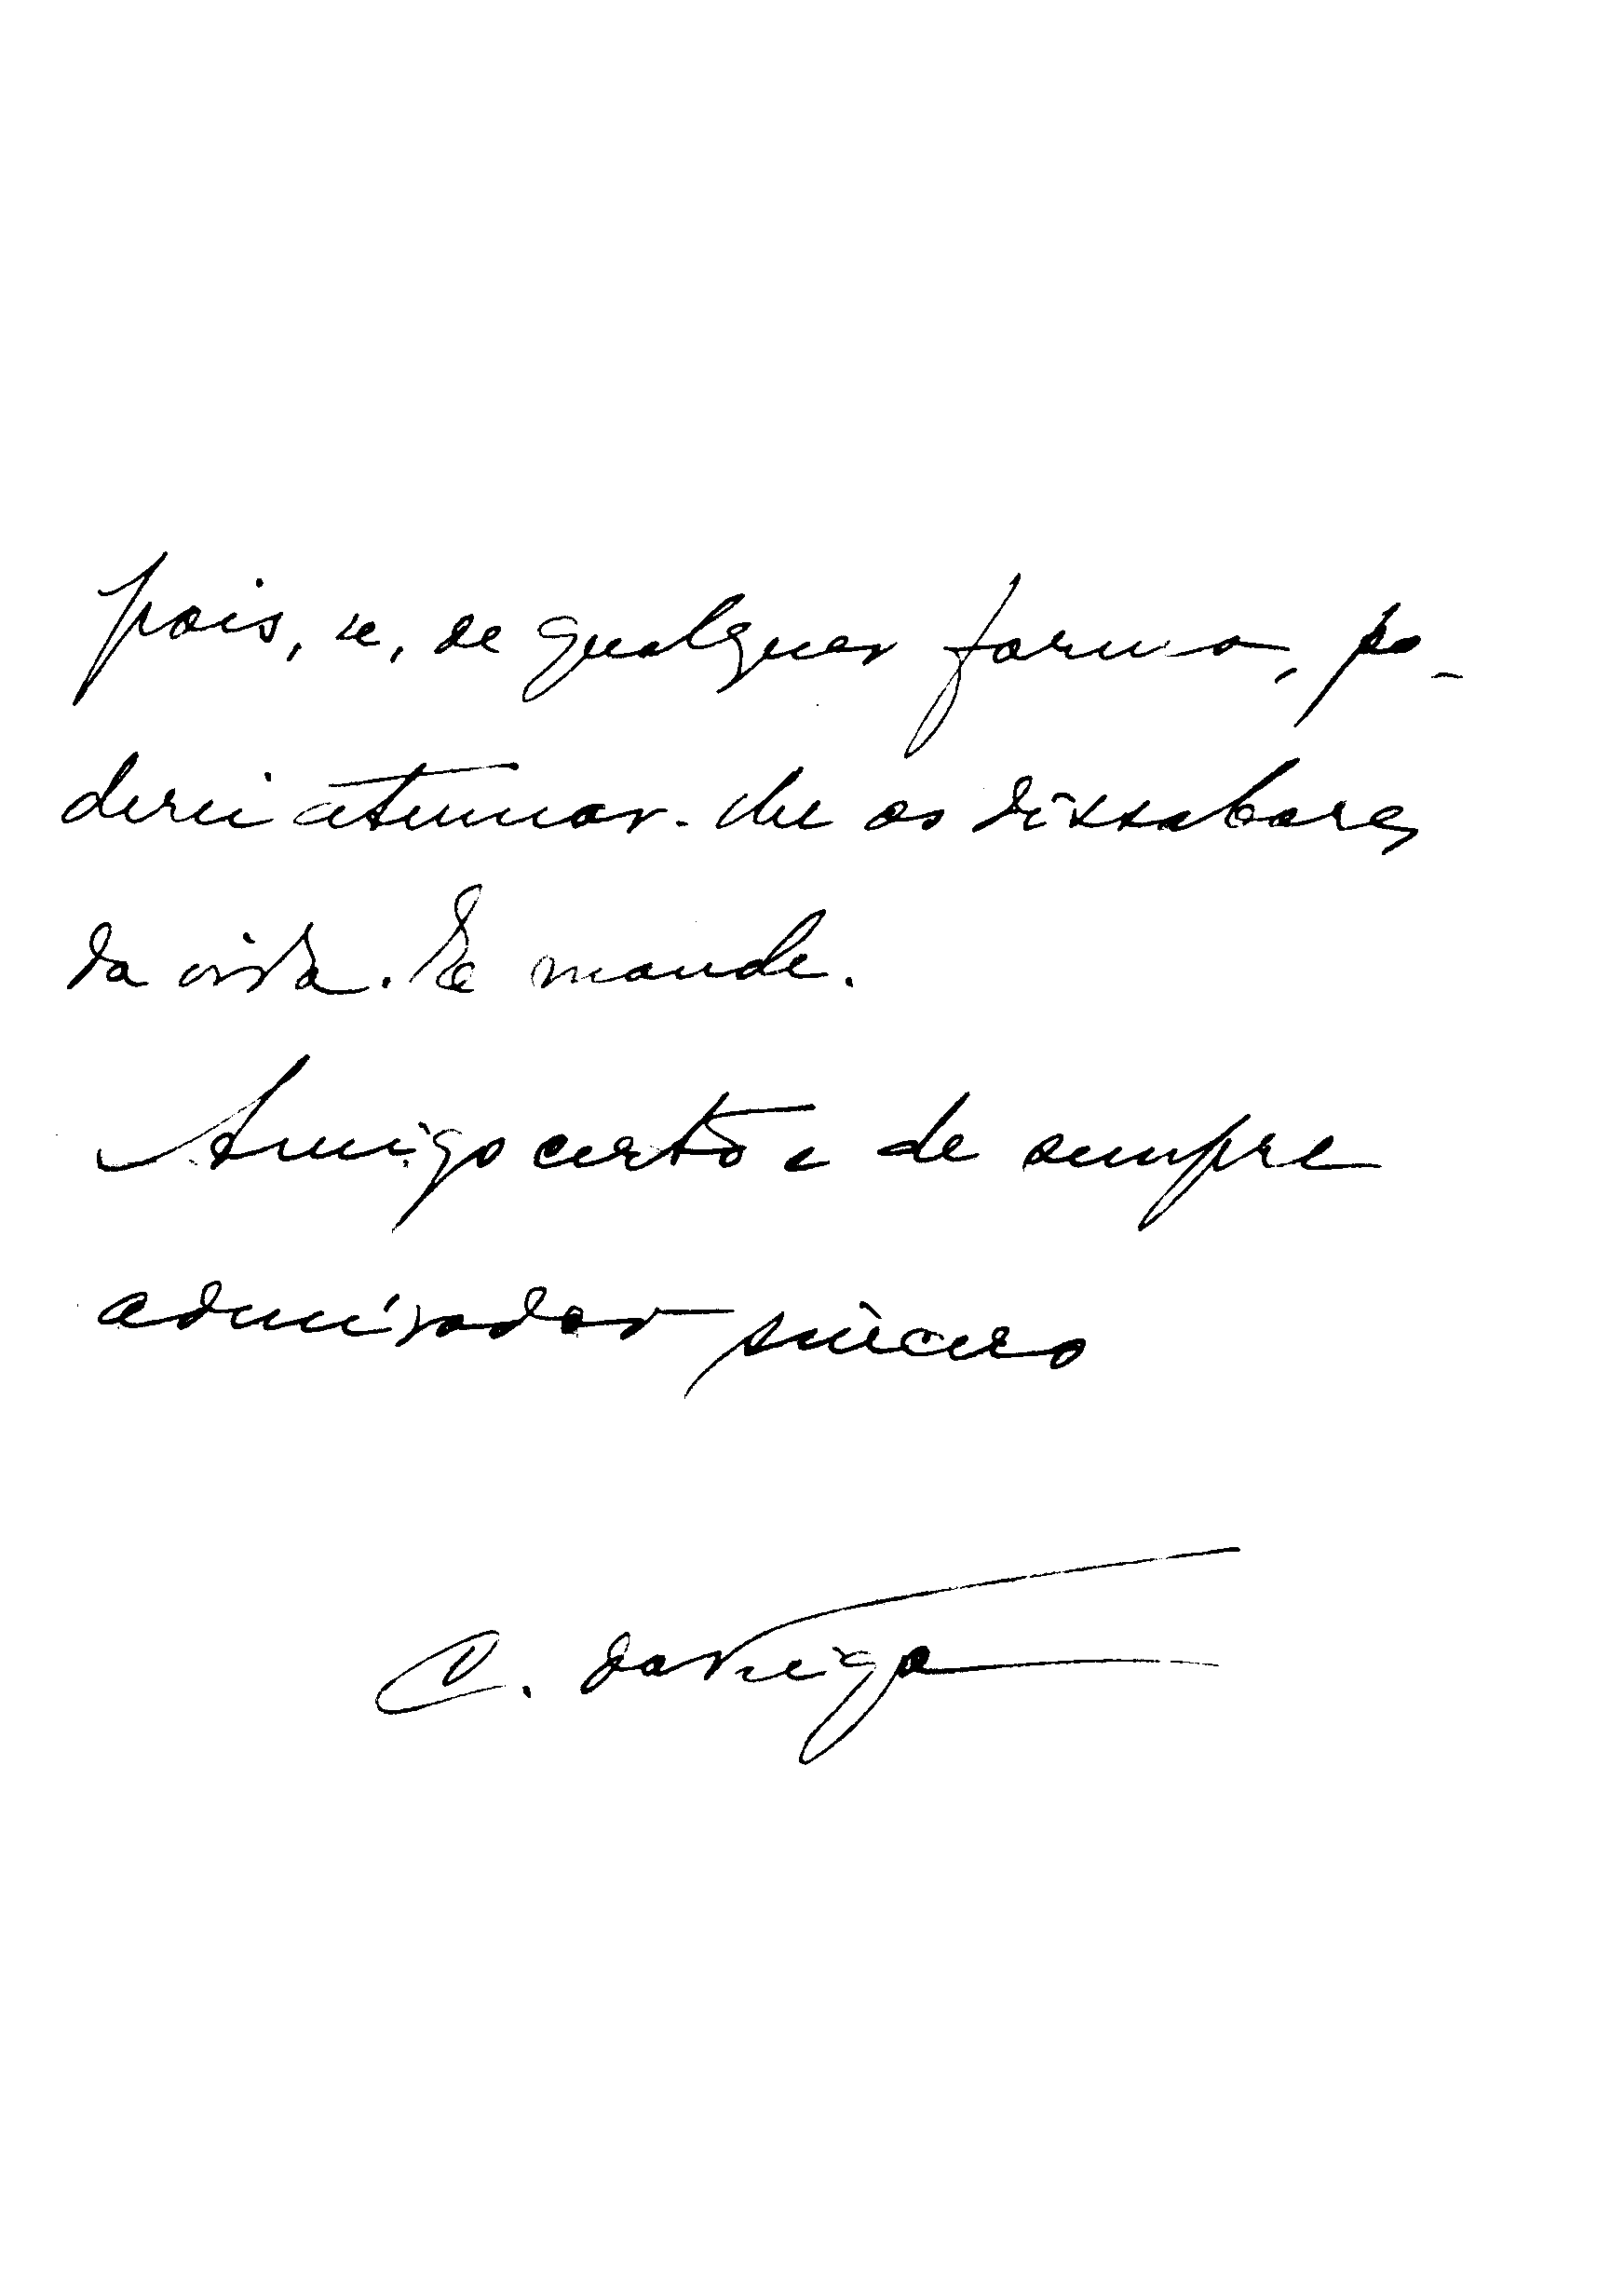 pois, se, de qualquer forma, po-
derei atenuar-lhe os dissabores
da vida. E mande.
Amigo certo e de sempre
admirador sincero
C. da Veiga